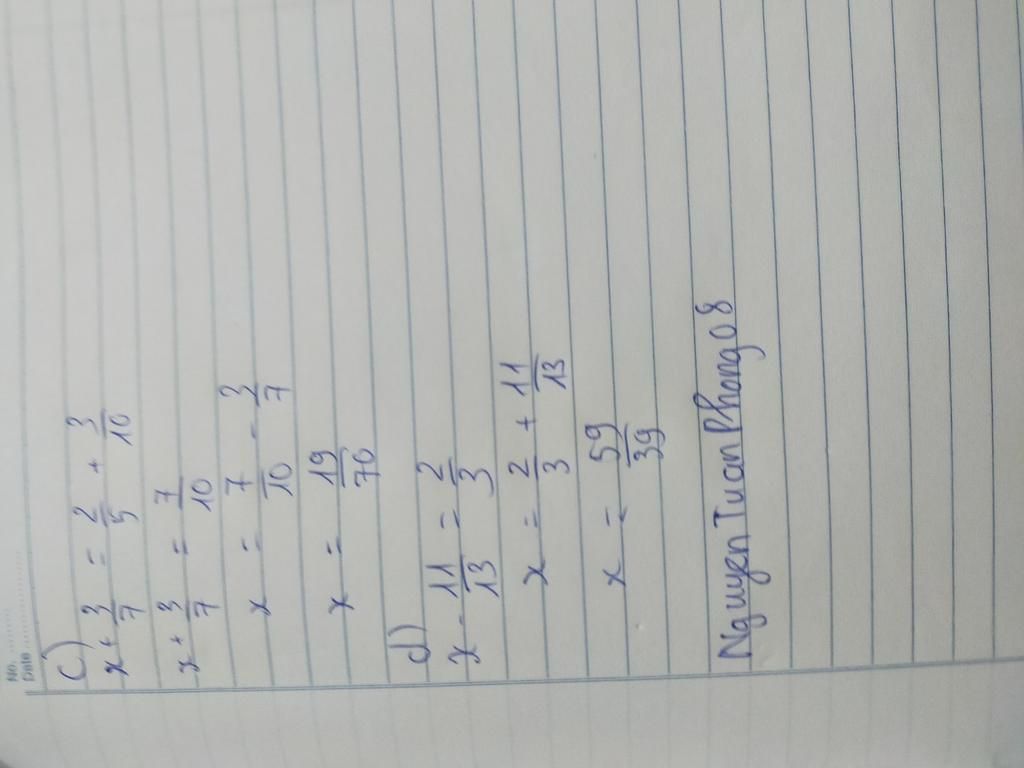 No. ............
Date ............
c)
x + 3/7 = 2/5 + 3/10
x + 3/7 = 7/10
x = 7/10 - 3/7
x = 19/70
d)
x - 11/13 = 2/3
x = 2/3 + 11/13
x = 59/39
Nguyen Tuan Phong 08